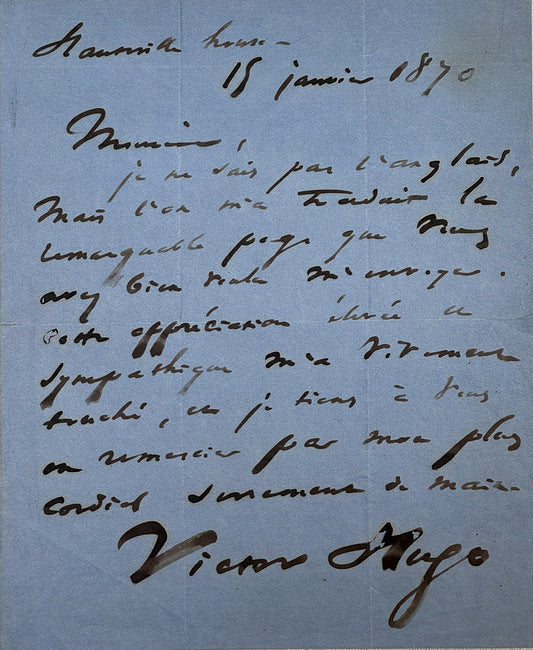 Hauteville house –
15 janvier 1870
Monsieur,
je ne sais pas l'anglais,
Mais l'on m'a traduit la
remarquable page que vous
avez bien voulu m'envoyer.
Cette appréciation élevée et
sympathique m'a vivement
touché, et je tiens à vous
en remercier par mon plus
cordial serrement de main.
Victor Hugo